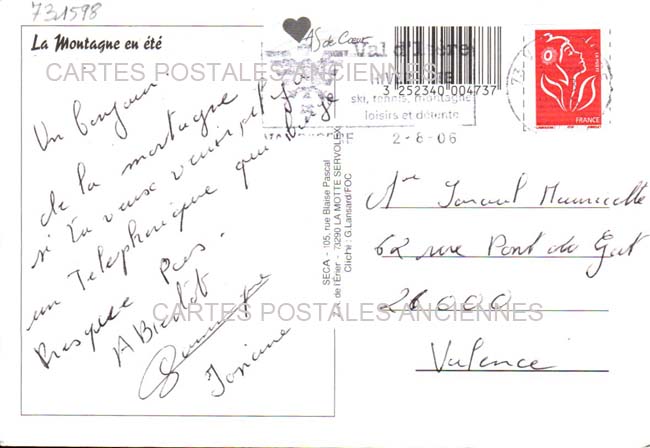 731598
La Montagne en été
AS de Cœur
Val d'Isère
3 252340 004737
ski, tennis, montagne
loisirs et détente
2-8-06
FRANCE
CARTES POSTALES ANCIENNES
Un bonjour
de la montagne
si tu veux venir, il y a
un Telepherique qui bouge
Presque Pas.
A Bientôt
Josiane
SECA - 105, rue Blaise Pascal
de l'Erier - 73290 LA MOTTE SERVOLEX
Cliché : G.Lansard/FOC
62 rue Pont du Gat
26000
Valence
CARTES POSTALES ANCIENNES